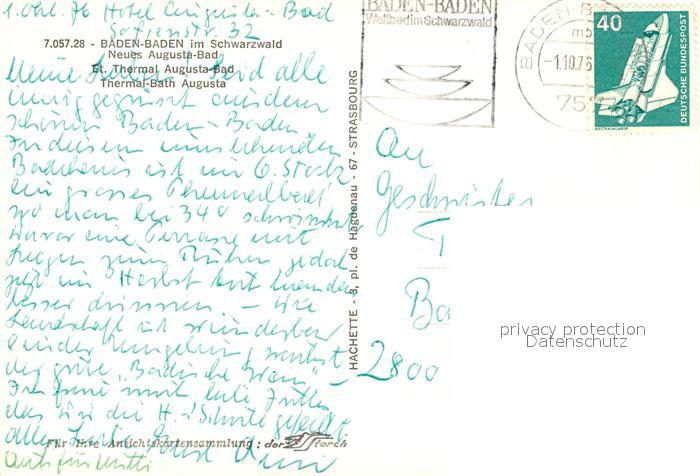 1. Okt. 76 Hotel Augusta-Bad
Sofienstr. 32
7.057.28 - BADEN-BADEN im Schwarzwald
Neues Augusta-Bad
Et. Thermal Augusta-Bad
Thermal-Bath Augusta
Meine Seid alle
innig gegrüsst aus dem
schönen Baden-Baden
In diesem
Badehaus ist im 6. Stock
ein grosses Thermalbad
wo man bei 34° schwimmt
eine Terrasse mit
Liegen zum Ruhen jedoch
jetzt im Herbst
besser drinnen. – Die
Landschaft ist wunderbar
in der Umgebung,
der gute "Badische Wein"
Ich freue mich
das die H. Schule
alles
Auch für Mutti
Für Ihre Ansichtskartensammlung: der Storch
HACHETTE - 3, pl. de Haguenau - 67 - STRASBOURG
BADEN-BADEN
Weltbad im Schwarzwald
BADEN-B
mb
-1.10.76
757
40
DEUTSCHE BUNDESPOST
WELTRAUMLABOR
An
Geschwister
T
Ba
2800
privacy protection
Datenschutz